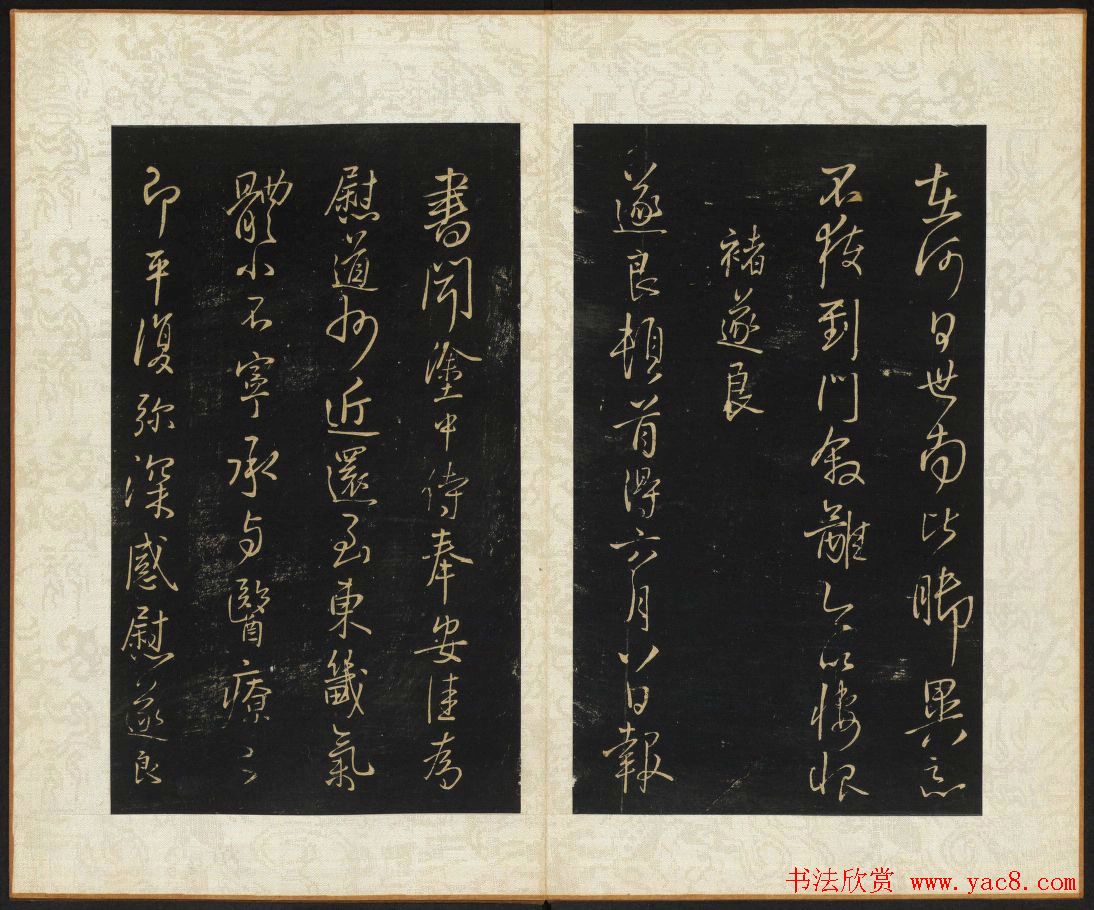 在何日世南比脚異
不獲到門叙離以悽恨
褚遂良
遂良頓首得六月八日報
書聞塗中侍奉安佳為
慰道州近還至東籤氣
體小不寧承与醫療之
即平復弥深感慰遂良
书法欣赏 www.yac8.com